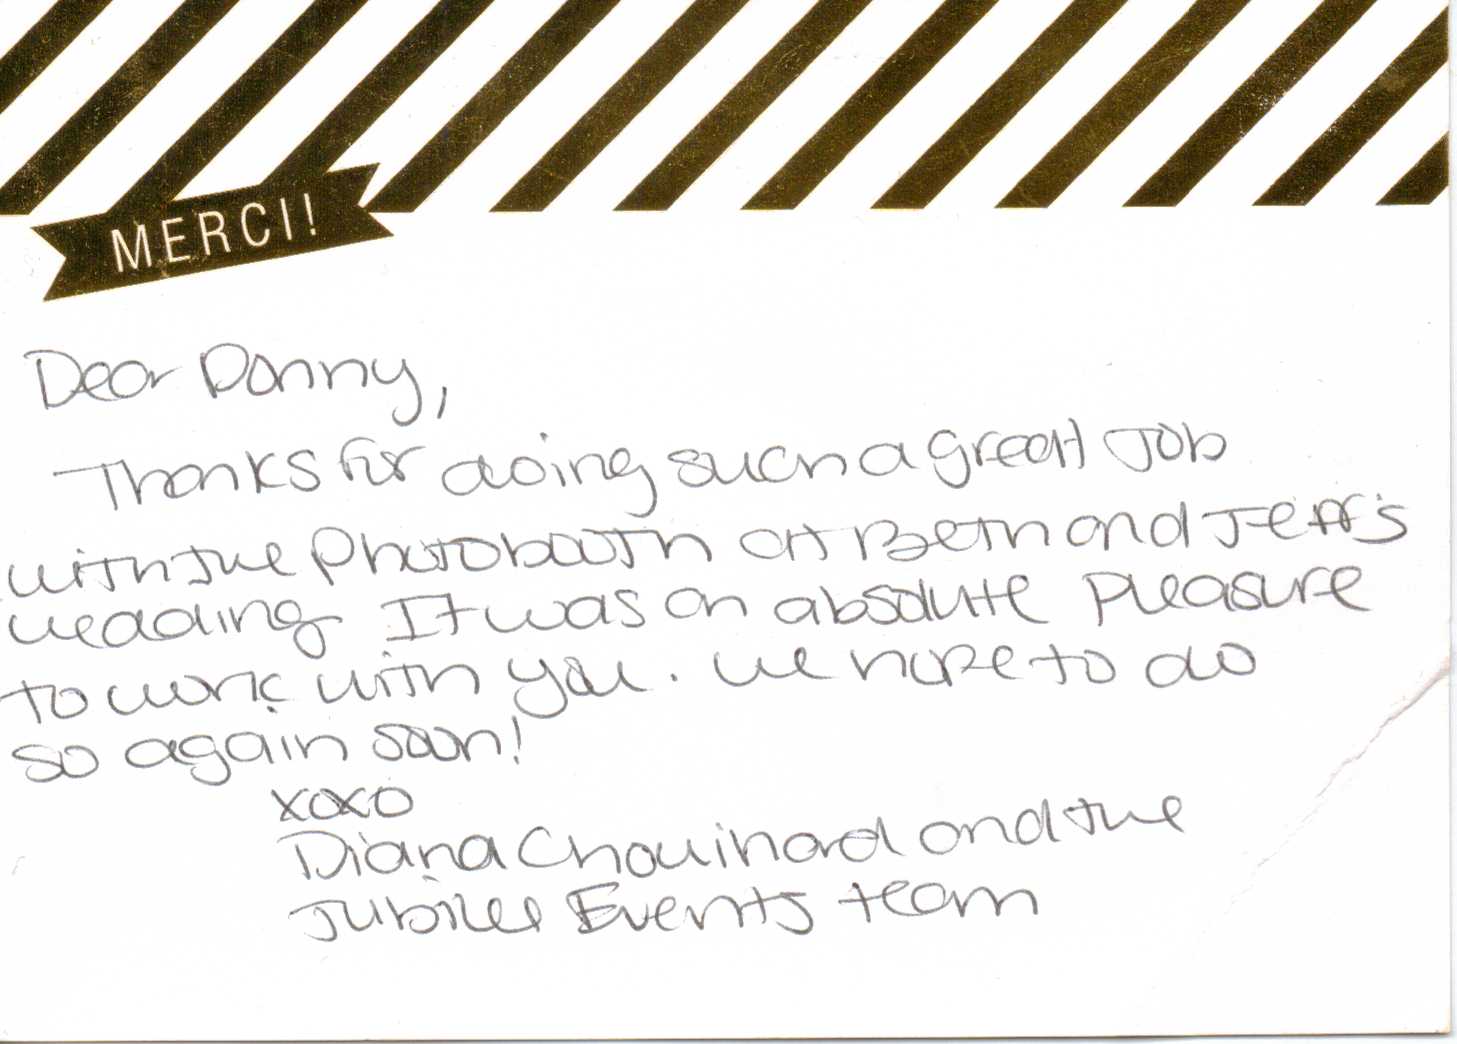 MERCI!
Dear Donny,
Thanks for doing such a great Job
with the Photobooth at Beth and Jeff's
wedding. It was an absolute pleasure
to work with you. We hope to do
so again soon!
xoxo
Diana Chouinard and the
Jubilee Events team